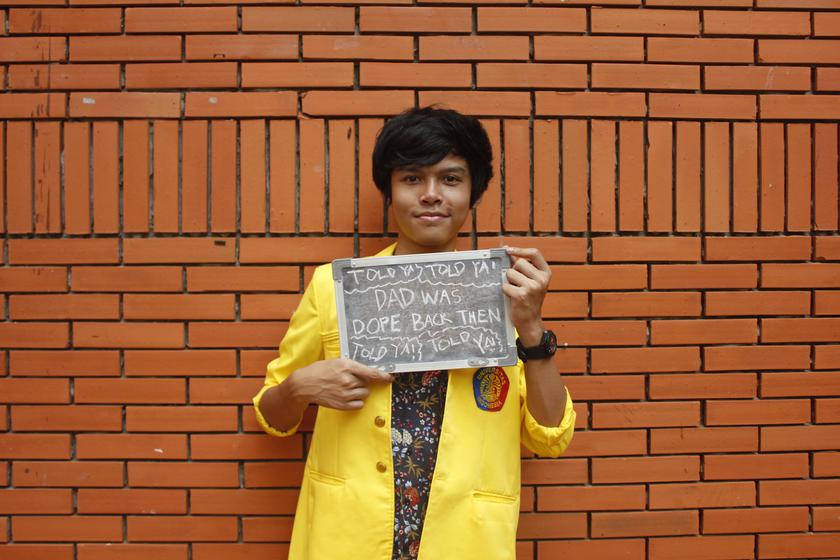 TOLD YA! TOLD YA!
DAD WAS
DOPE BACK THEN
TOLD YA!! TOLD YA!!
UNIVERSITAS
INDONESIA